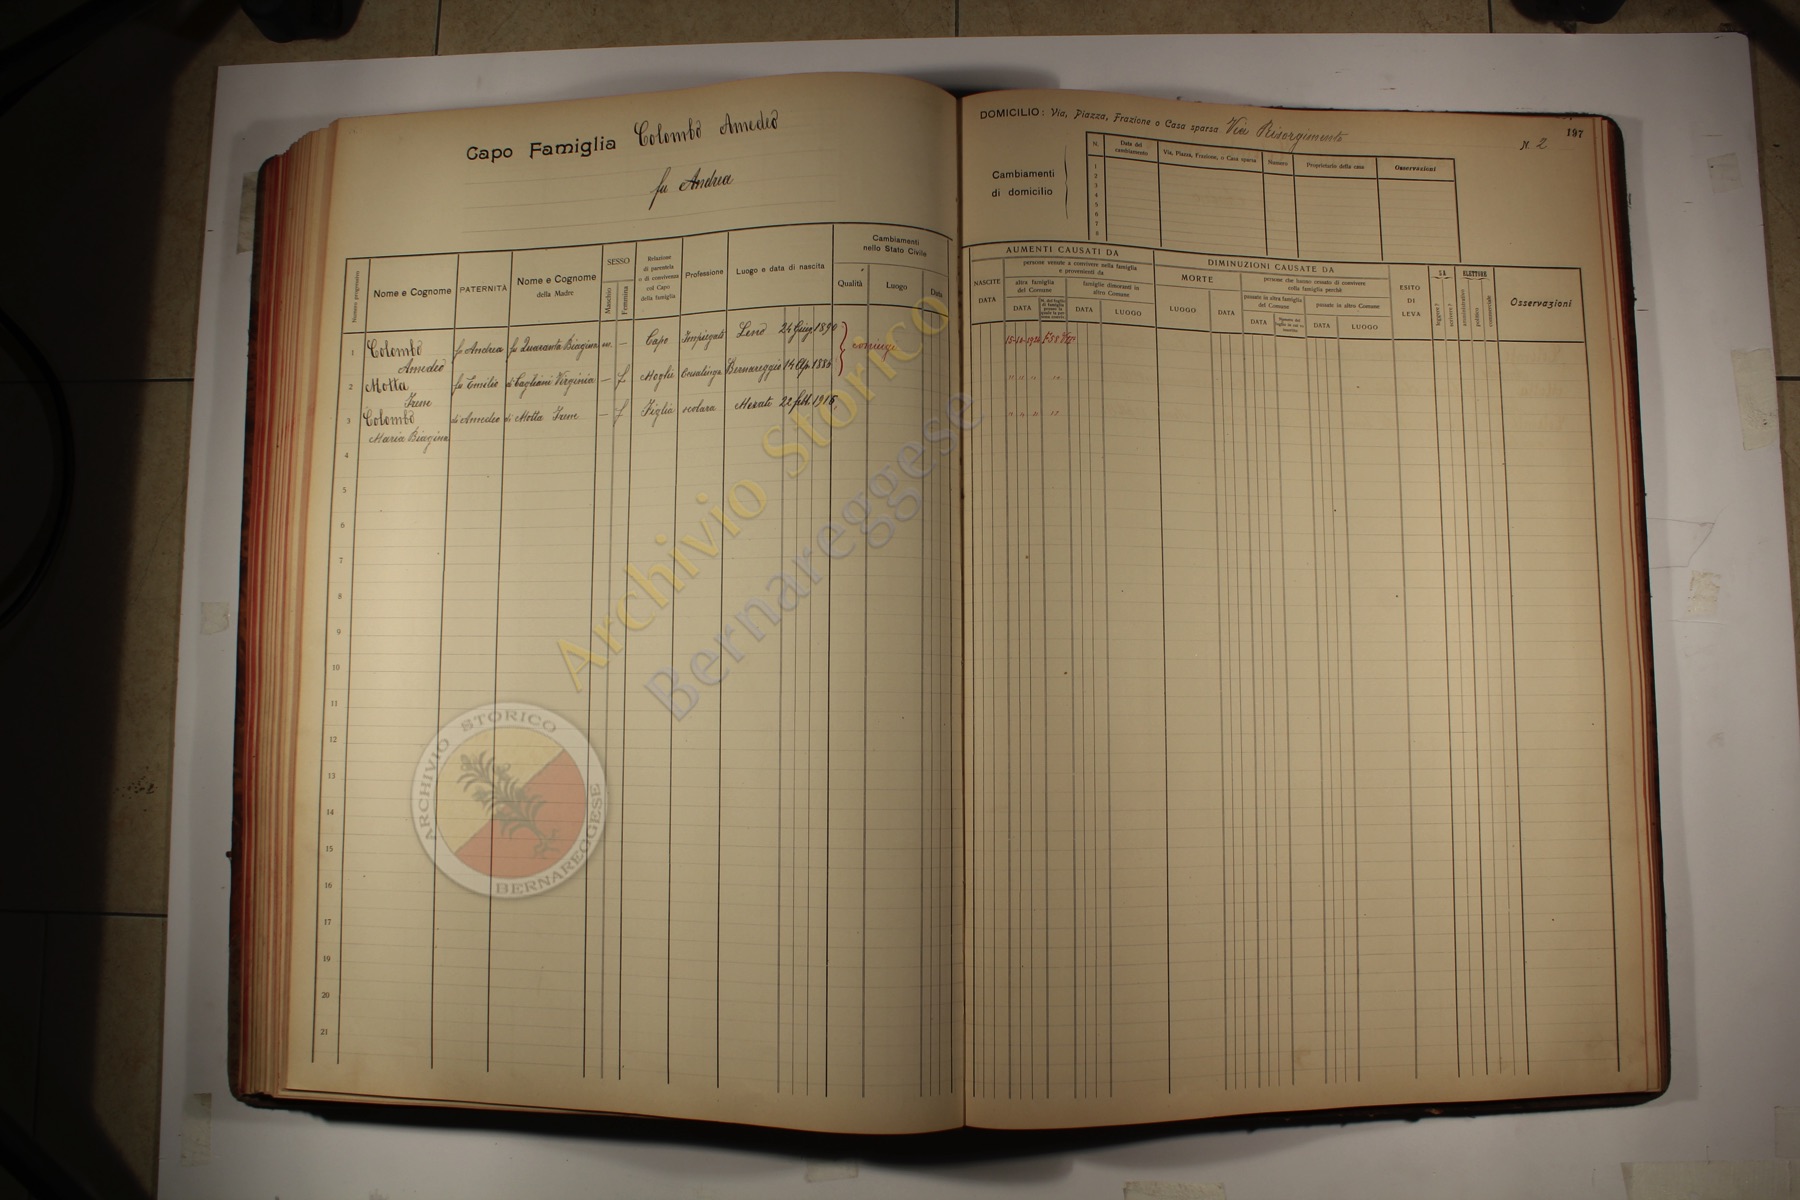 Capo Famiglia Colombo Amedeo
fu Andrea
Numero progressivo
Nome e Cognome
PATERNITÀ
Nome e Cognome
della Madre
SESSO
Maschio
Femmina
Relazione
di parentela
o di convivenza
col Capo
della famiglia
Professione
Luogo e data di nascita
Cambiamenti
nello Stato Civile
Qualità
Luogo
Data
1 Colombo Amedeo fu Andrea fu Quaranta Biagina m. — Capo Impiegato 24 Giug 1890 coniugi
2 Motta Irene fu Emilio di Cagliani Virginia — f Moglie Casalinga Bernareggio 14
3 Colombo Maria Biagina di Amedeo di Motta Irene — f Figlia scolara Merate 22 febb. 1916
4
5
6
7
8
9
10
11
12
13
14
15
16
17
18
19
20
21
DOMICILIO: Via, Piazza, Frazione o Casa sparsa Via Risorgimento
N. 2
197
Cambiamenti
di domicilio
N.
Data del
cambiamento
Via, Piazza, Frazione, o Casa sparsa
Numero
Proprietario della casa
Osservazioni
1
2
3
4
5
6
7
8
AUMENTI CAUSATI DA
NASCITE
DATA
persone venute a convivere nella famiglia
e provenienti da
altra famiglia
del Comune
DATA
famiglie dimoranti in
altro Comune
DATA
LUOGO
DIMINUZIONI CAUSATE DA
MORTE
LUOGO
DATA
persone che hanno cessato di convivere
colla famiglia perchè
passate in altra famiglia
del Comune
DATA
passate in altro Comune
DATA
LUOGO
ESITO
DI
LEVA
SA
leggere?
scrivere?
ELETTORE
amministrativo
politico
commerciale
Osservazioni
Archivio Storico
Bernareggese
ARCHIVIO STORICO
BERNAREGGESE